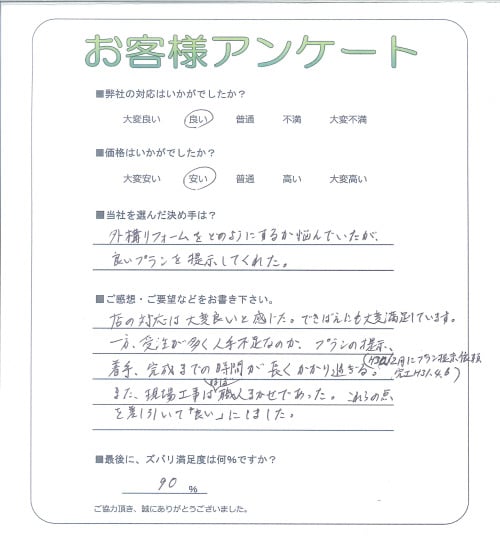 お客様アンケート
■弊社の対応はいかがでしたか？
大変良い 良い 普通 不満 大変不満
■価格はいかがでしたか？
大変安い 安い 普通 高い 大変高い
■当社を選んだ決め手は？
外構リフォームをどのようにするか悩んでいたが、
良いプランを提示してくれた。
■ご感想・ご要望などをお書き下さい。
店の対応は大変良いと感じた。できばえにも大変満足しています。
一方、受注が多く人手不足なのか、プランの提示、
着手、完成までの時間が長くかかり過ぎる。
(12月にプラン提示依頼
完工H31.4.6)
また、現場工事はほぼ職人まかせであった。これらの点
を差引いて「良い」にしました。
■最後に、ズバリ満足度は何％ですか？
90 ％
ご協力頂き、誠にありがとうございました。